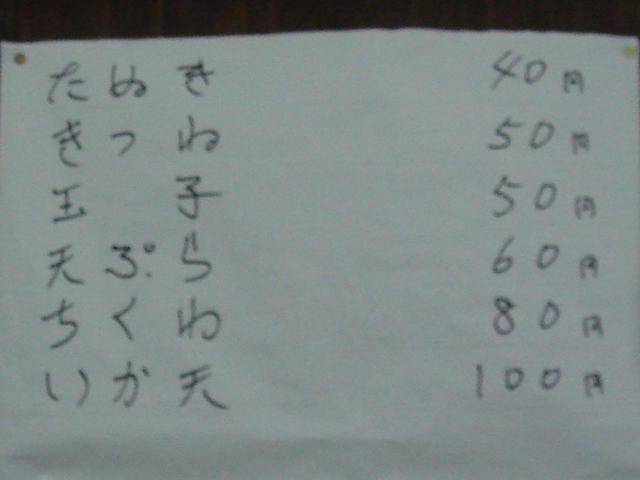 たぬき 40円
きつね 50円
玉子 50円
天ぷら 60円
ちくわ 80円
いか天 100円